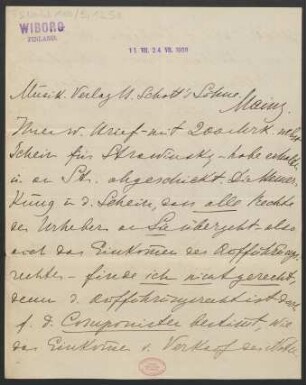 WIBORG
FINLAND.
11 VII. 24 VII. 1909
Musik. Verlag B. Schott's Söhne
Mainz.
Ihren w. Brief mit 200 Mrk. nebst
Schein für Strawinsky habe erhalten
u. an Str. abgeschickt. Die Bemer-
kung in d. Schein, dass alle Rechte
des Urhebers an Sie übergeht also
auch das Einkommen des Aufführungs-
rechtes – finde ich nicht gerecht,
denn d. Aufführungsrecht ist
f. d. Componisten bestimt, wie
das Einkome v. Verkauf